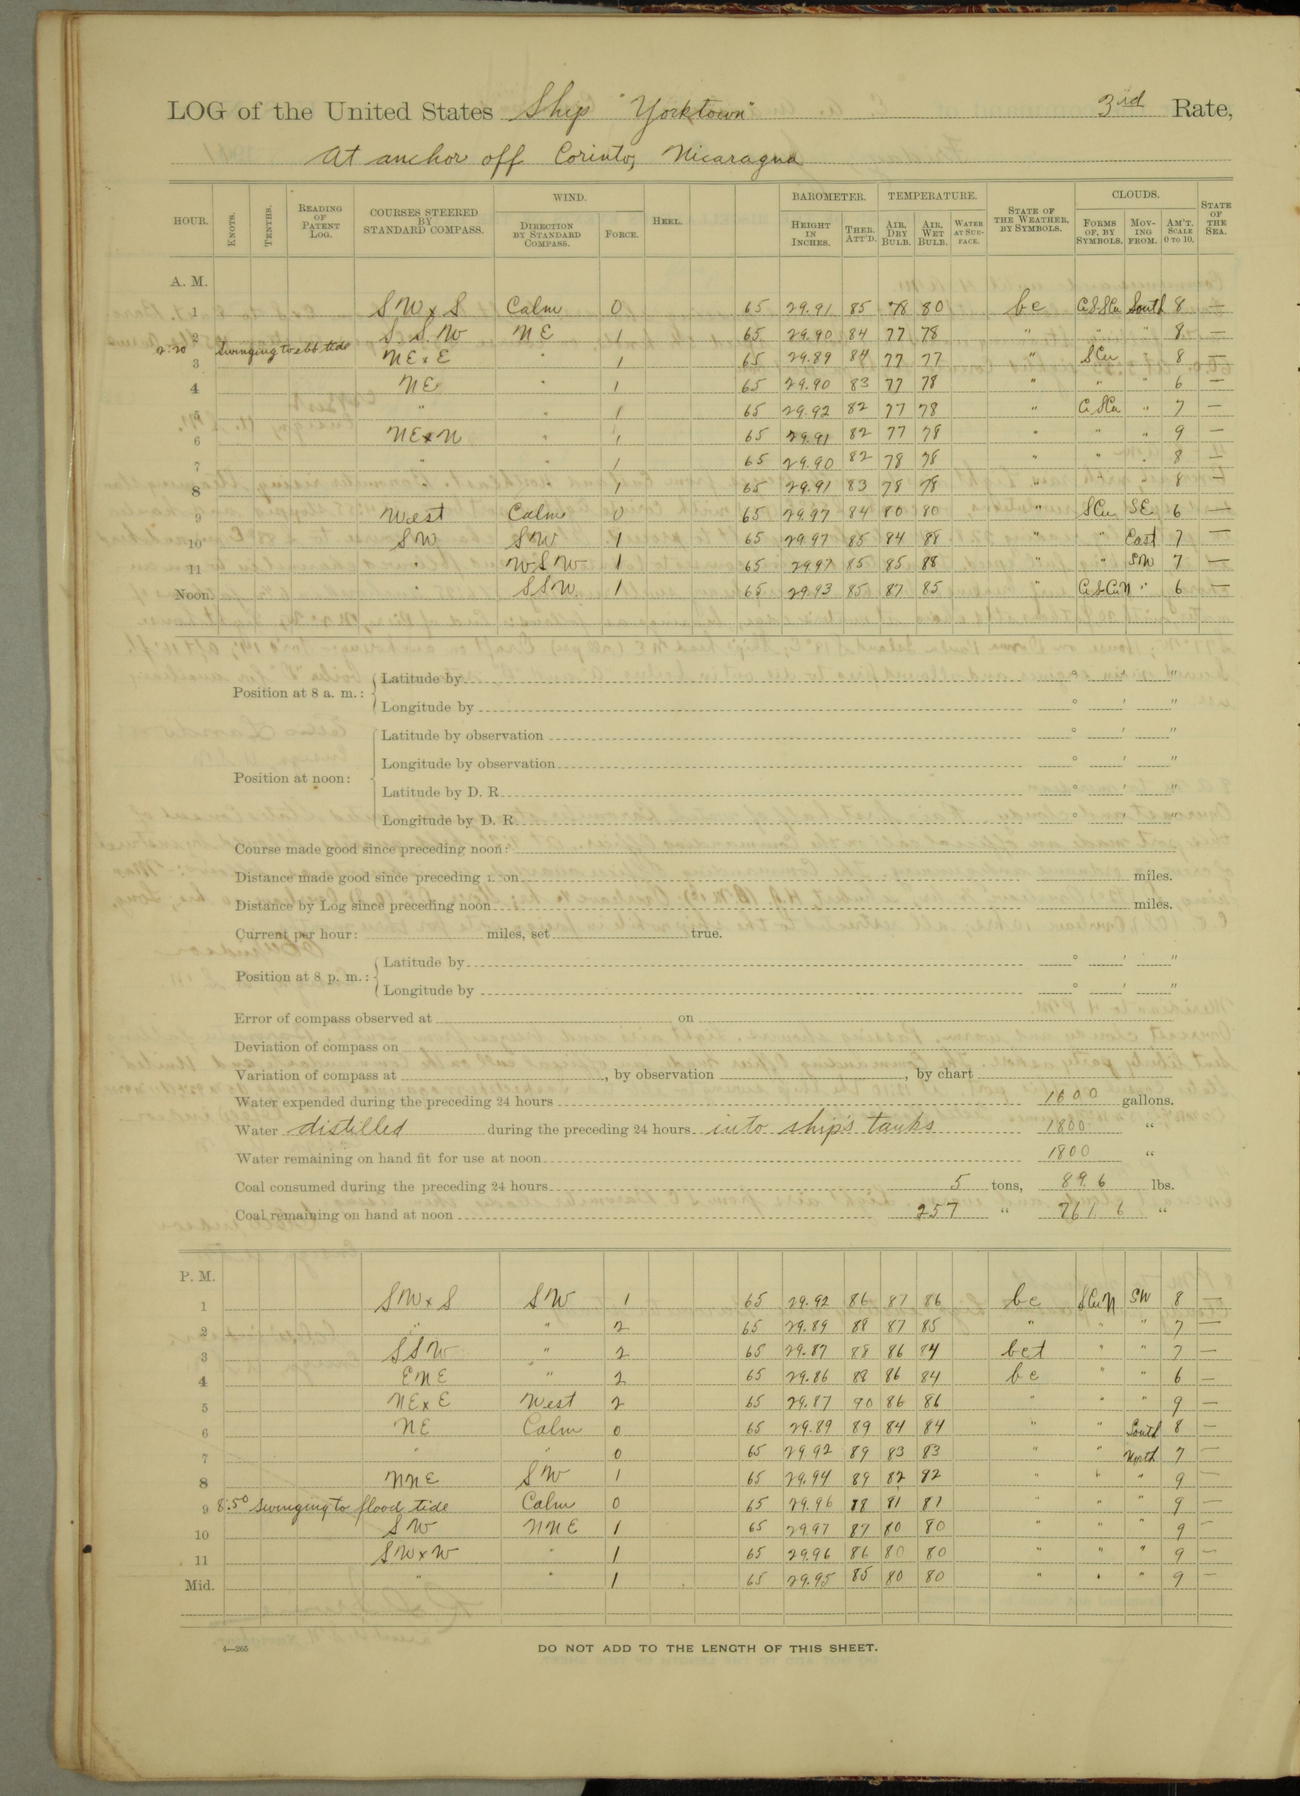 LOG of the United States Ship "Yorktown" 3rd Rate,
At anchor off Corinto, Nicaragua
HOUR. KNOTS. TENTHS. READING OF PATENT LOG. COURSES STEERED BY STANDARD COMPASS. WIND. DIRECTION BY STANDARD COMPASS. FORCE. HEEL. BAROMETER. HEIGHT IN INCHES. THER. ATT'D. TEMPERATURE. AIR, DRY BULB. AIR, WET BULB. WATER AT SUR-FACE. STATE OF THE WEATHER, BY SYMBOLS. CLOUDS. FORMS OF, BY SYMBOLS. MOV-ING FROM. AM'T. SCALE 0 TO 10. STATE OF THE SEA.
A. M.
1 SW x S Calm 0 65 29.91 85 78 80 bc C.S.SCu South 8 —
2 S.S.W NE 1 65 29.90 84 77 78 " " " 8 —
2:20 Swinging to ebb tide
3 NE x E " 1 65 29.89 84 77 77 " SCu " 8 —
4 NE " 1 65 29.90 83 77 78 " " " 6 —
5 " " 1 65 29.92 82 77 78 " C SCu " 7 —
6 NE x N " 1 65 29.91 82 77 78 " " " 9 —
7 " " 1 65 29.90 82 78 78 " " " 8 —
8 " " 1 65 29.91 83 78 78 " " " 8 —
9 West Calm 0 65 29.97 84 80 80 " SCu SE 6 —
10 SW SW 1 65 29.97 85 84 88 " " East 7 —
11 " WSW 1 65 29.97 85 85 88 " " SW 7 —
Noon. " SSW. 1 65 29.93 85 87 85 " C.S.CuN " 6 —
Position at 8 a. m.: Latitude by ° ' "
Longitude by ° ' "
Position at noon: Latitude by observation ° ' "
Longitude by observation ° ' "
Latitude by D. R. ° ' "
Longitude by D. R. ° ' "
Course made good since preceding noon:
Distance made good since preceding noon miles.
Distance by Log since preceding noon miles.
Current per hour: miles, set true.
Position at 8 p. m.: Latitude by ° ' "
Longitude by ° ' "
Error of compass observed at on
Deviation of compass on
Variation of compass at , by observation , by chart
Water expended during the preceding 24 hours 1600 gallons.
Water distilled during the preceding 24 hours into ship's tanks 1800 "
Water remaining on hand fit for use at noon 1800 "
Coal consumed during the preceding 24 hours 5 tons, 896 lbs.
Coal remaining on hand at noon 257 " 761 6 "
P. M.
1 SW x S SW 1 65 29.92 86 87 86 bc SCuN SW 8 —
2 " " 2 65 29.89 88 87 85 " " " 7 —
3 SSW " 2 65 29.87 88 86 84 bct " " 7 —
4 ENE " 2 65 29.86 88 86 84 bc " " 6 —
5 NE x E West 2 65 29.87 90 86 86 " " " 9 —
6 NE Calm 0 65 29.89 89 84 84 " " South 8 —
7 " " 0 65 29.92 89 83 83 " " North 7 —
8 NNE SW 1 65 29.94 89 82 82 " " " 9 —
9 8:50 Swinging to flood tide Calm 0 65 29.96 88 81 81 " " " 9 —
10 SW NNE 1 65 29.97 87 80 80 " " " 9 —
11 SW x W " 1 65 29.96 86 80 80 " " " 9 —
Mid. " " 1 65 29.95 85 80 80 " " " 9 —
4—265
DO NOT ADD TO THE LENGTH OF THIS SHEET.